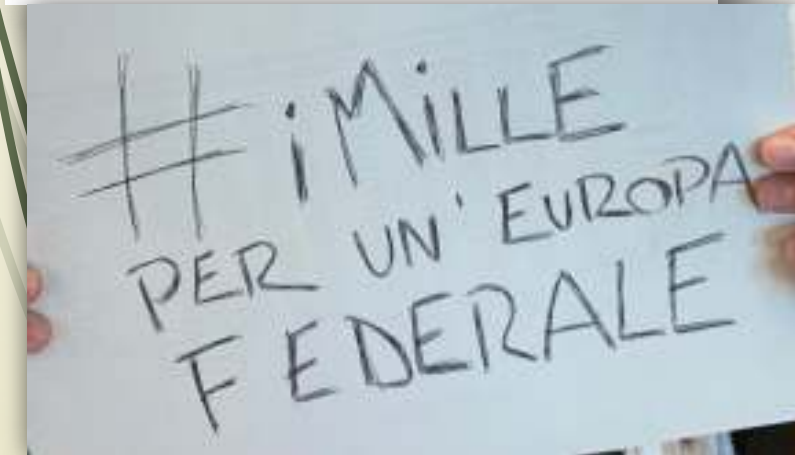 #iMiLLE
PER UN' EUROPA
FEDERALE